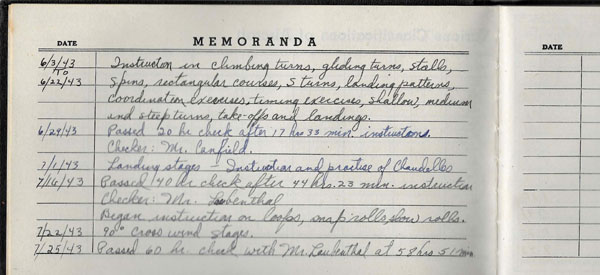 DATE MEMORANDA DATE
6/3/43 Instruction in climbing turns, gliding turns, stalls,
TO
6/22/43 Spins, rectangular courses, S turns, landing patterns,
coordination exercises, timing exercises, shallow, medium
and steep turns, take-offs and landings.
6/29/43 Passed 20 hr check after 17 hrs 33 min. instructions.
Checker: Mr. Canfield.
7/1/43 Landing stages - Instruction and practise of Chandelles
7/16/43 Passed 40 hr check after 44 hrs. 23 min. instruction
Checker: Mr. Loubenthal
Began instruction on loops, snap rolls, slow rolls.
7/22/43 90° cross wind stages.
7/25/43 Passed 60 hr. check with Mr. Laubenthal at 58 hrs 51 min